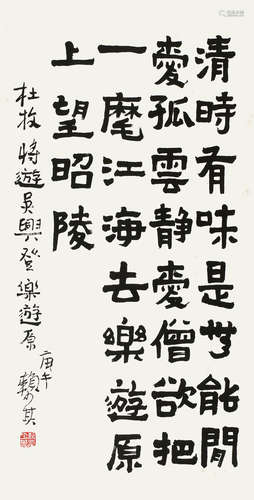 清時有味是無能閒
愛孤雲靜愛僧欲把
一麾江海去樂遊原
上望昭陵
杜牧將遊吳興登樂遊原
庚午 賴少其